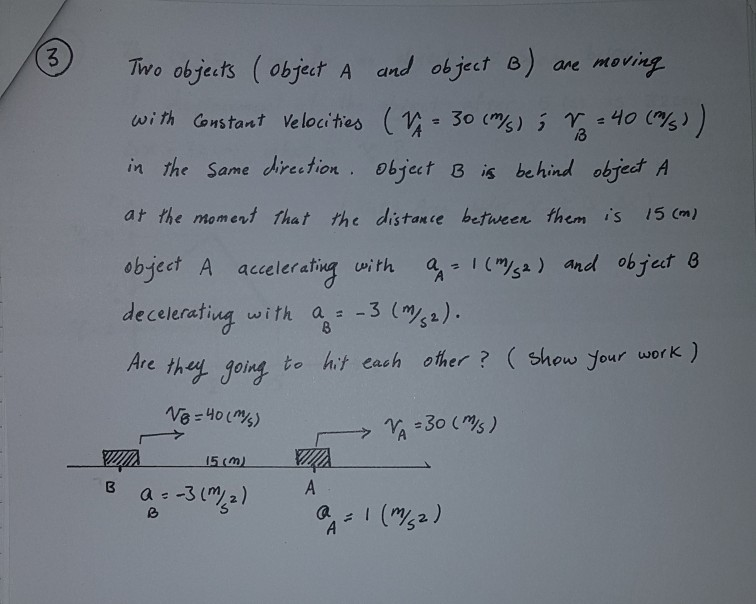 3
Two objects ( object A and object B ) are moving
with Constant Velocities ( V_A = 30 (m/s) ; V_B = 40 (m/s) )
in the Same direction . Object B is behind object A
at the moment that the distance between them is 15 (m)
object A accelerating with a_A = 1 (m/s2) and object B
decelerating with a_B = -3 (m/s2).
Are they going to hit each other ? ( Show your work )
V_B = 40 (m/s)
V_A = 30 (m/s)
15 (m)
B
A
a_B = -3 (m/s2)
a_A = 1 (m/s2)